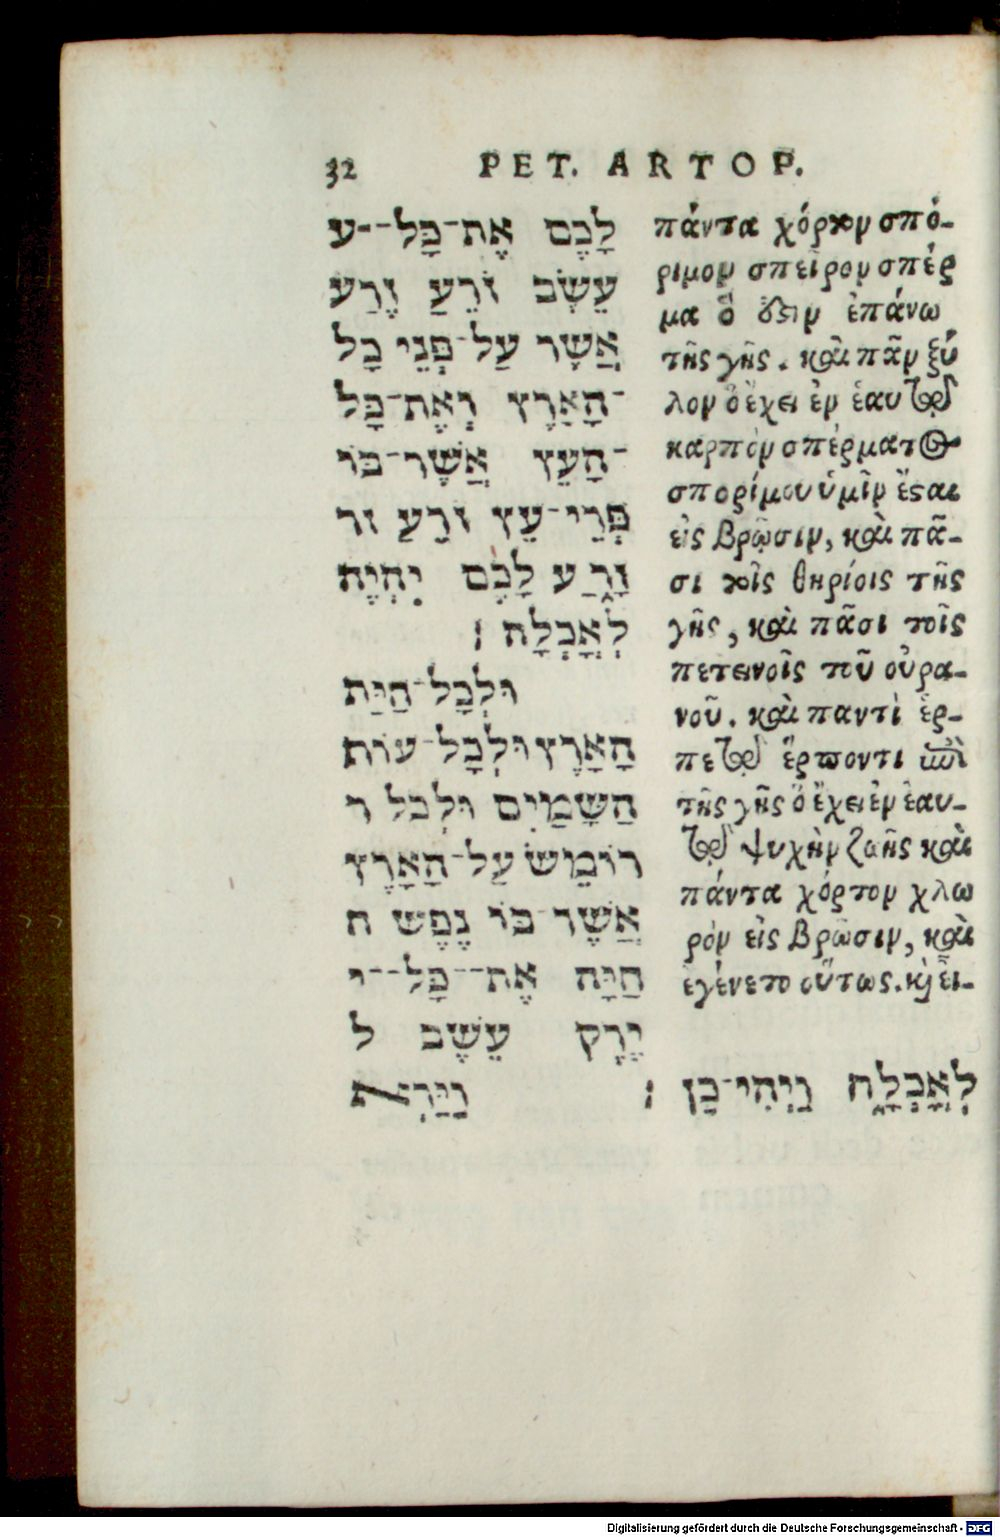 32 PET. ARTOP.
לָכֶם אֶת־כָּל־־ע
עֵשֶׂב זֹרֵעַ זֶרַע
אֲשֶׁר עַל־פְּנֵי כָל
־הָאָרֶץ וְאֶת־כָּל
־הָעֵץ אֲשֶׁר־בּוֹ
פְּרִי־עֵץ זֹרֵעַ זר
זָרַע לָכֶם יִהְיֶה
לְאָכְלָה ׃
וּלְכָל־הַיַּת
הָאָרֶץ וּלְכָל־עוֹת
הַשָּׁמַיִם וּלְכֹל ר
רוֹמֵשׂ עַל־הָאָרֶץ
אֲשֶׁר־בּוֹ נֶפֶשׁ ח
חַיָּה אֶת־־כָּל־־י
יֶרֶק עֵשֶׂב ל
לְאָכְלָה וַיְהִי־כֵן ׃ וַיַּרְא
πάντα χόρτον σπό-
ριμον σπεῖρον σπέρ
μα ὅ ὅζιν ἐπάνω
τῆς γῆς. καὶ πᾶν ξύ
λον ὃ ἔχει ἐν ἑαυτῷ
καρπὸν σπέρματος
σπορίμου ὑμῖν ἔσαι
εἰς βρῶσιν, καὶ πᾶ-
σι τοῖς θηρίοις τῆς
γῆς, καὶ πᾶσι τοῖς
πετεινοῖς τοῦ οὐρα-
νοῦ. καὶ παντὶ ἑρ-
πετῷ ἕρποντι ἐπὶ
τῆς γῆς ὃ ἔχει ἐν ἑαυ-
τῷ ψυχὴν ζωῆς καὶ
πάντα χόρτον χλω
ρὸν εἰς βρῶσιν, καὶ
ἐγένετο οὕτως. κὶ εἶ-
Digitalisierung gefördert durch die Deutsche Forschungsgemeinschaft - DFG